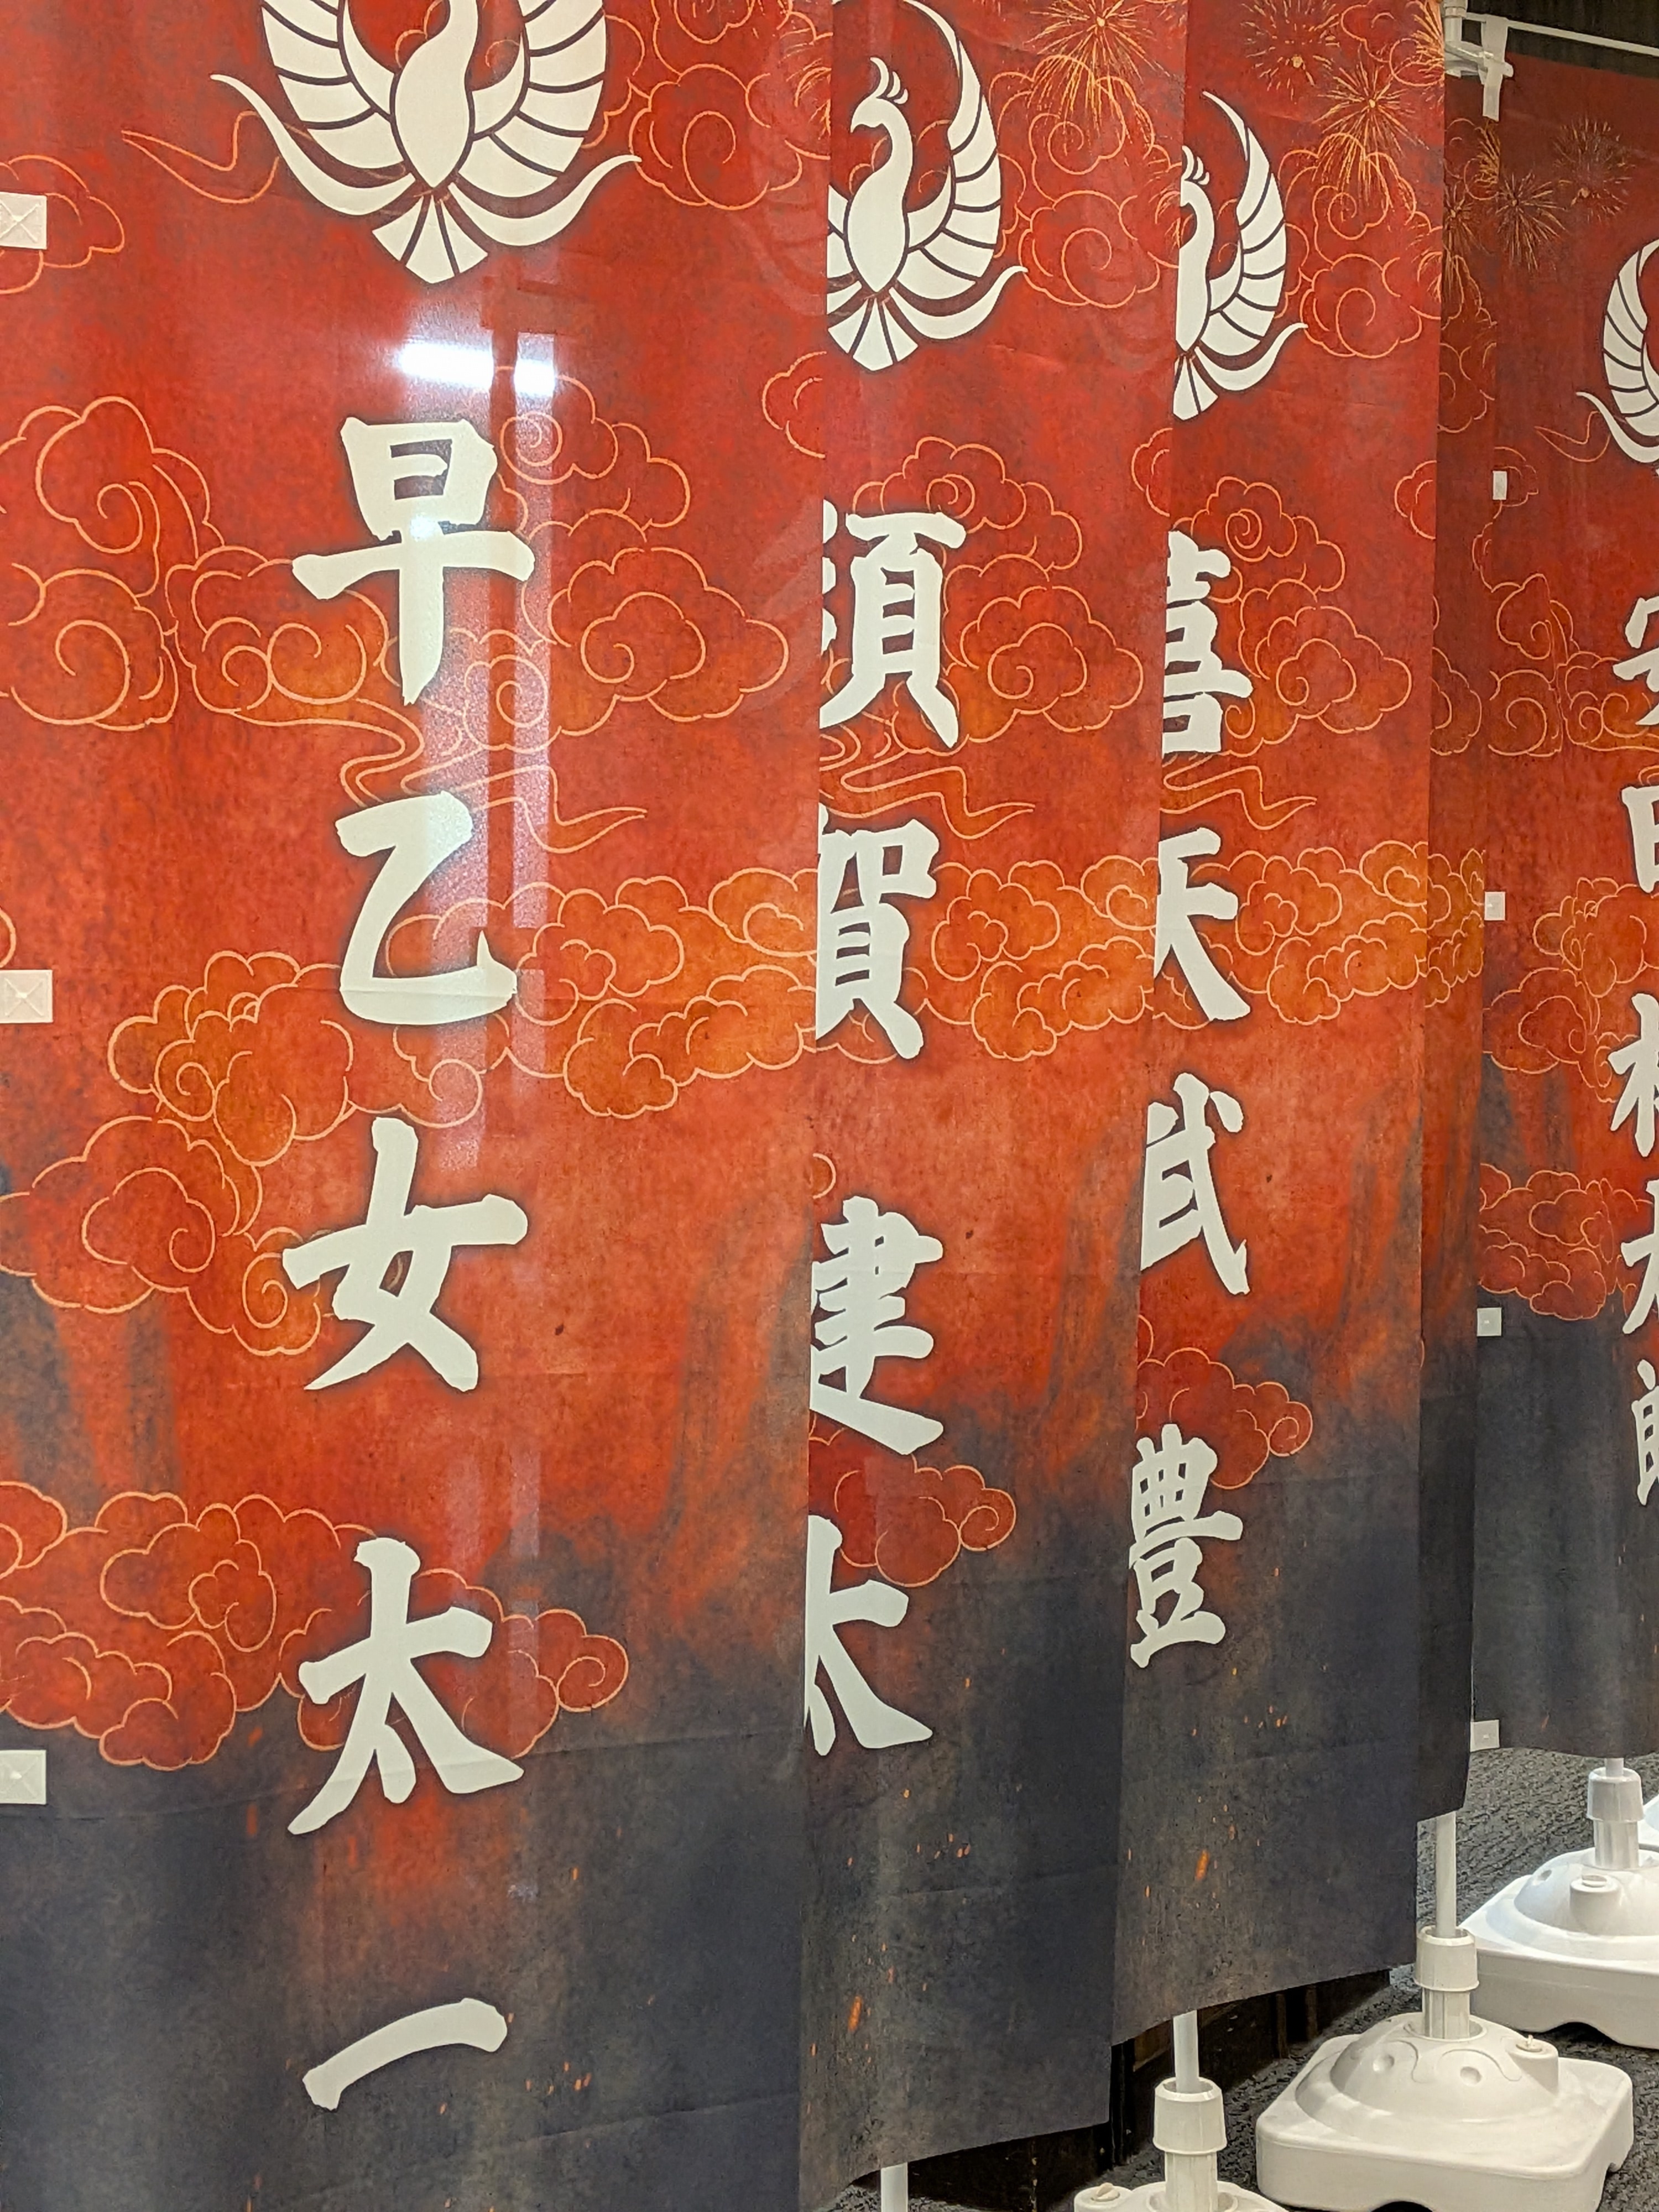 早乙女太一
須賀健太
喜矢武豊